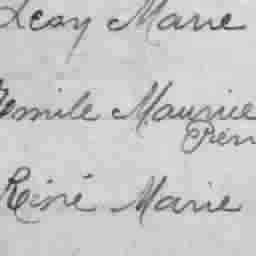 Leay Marie
Emile Maurice
Pierr
Réné Marie